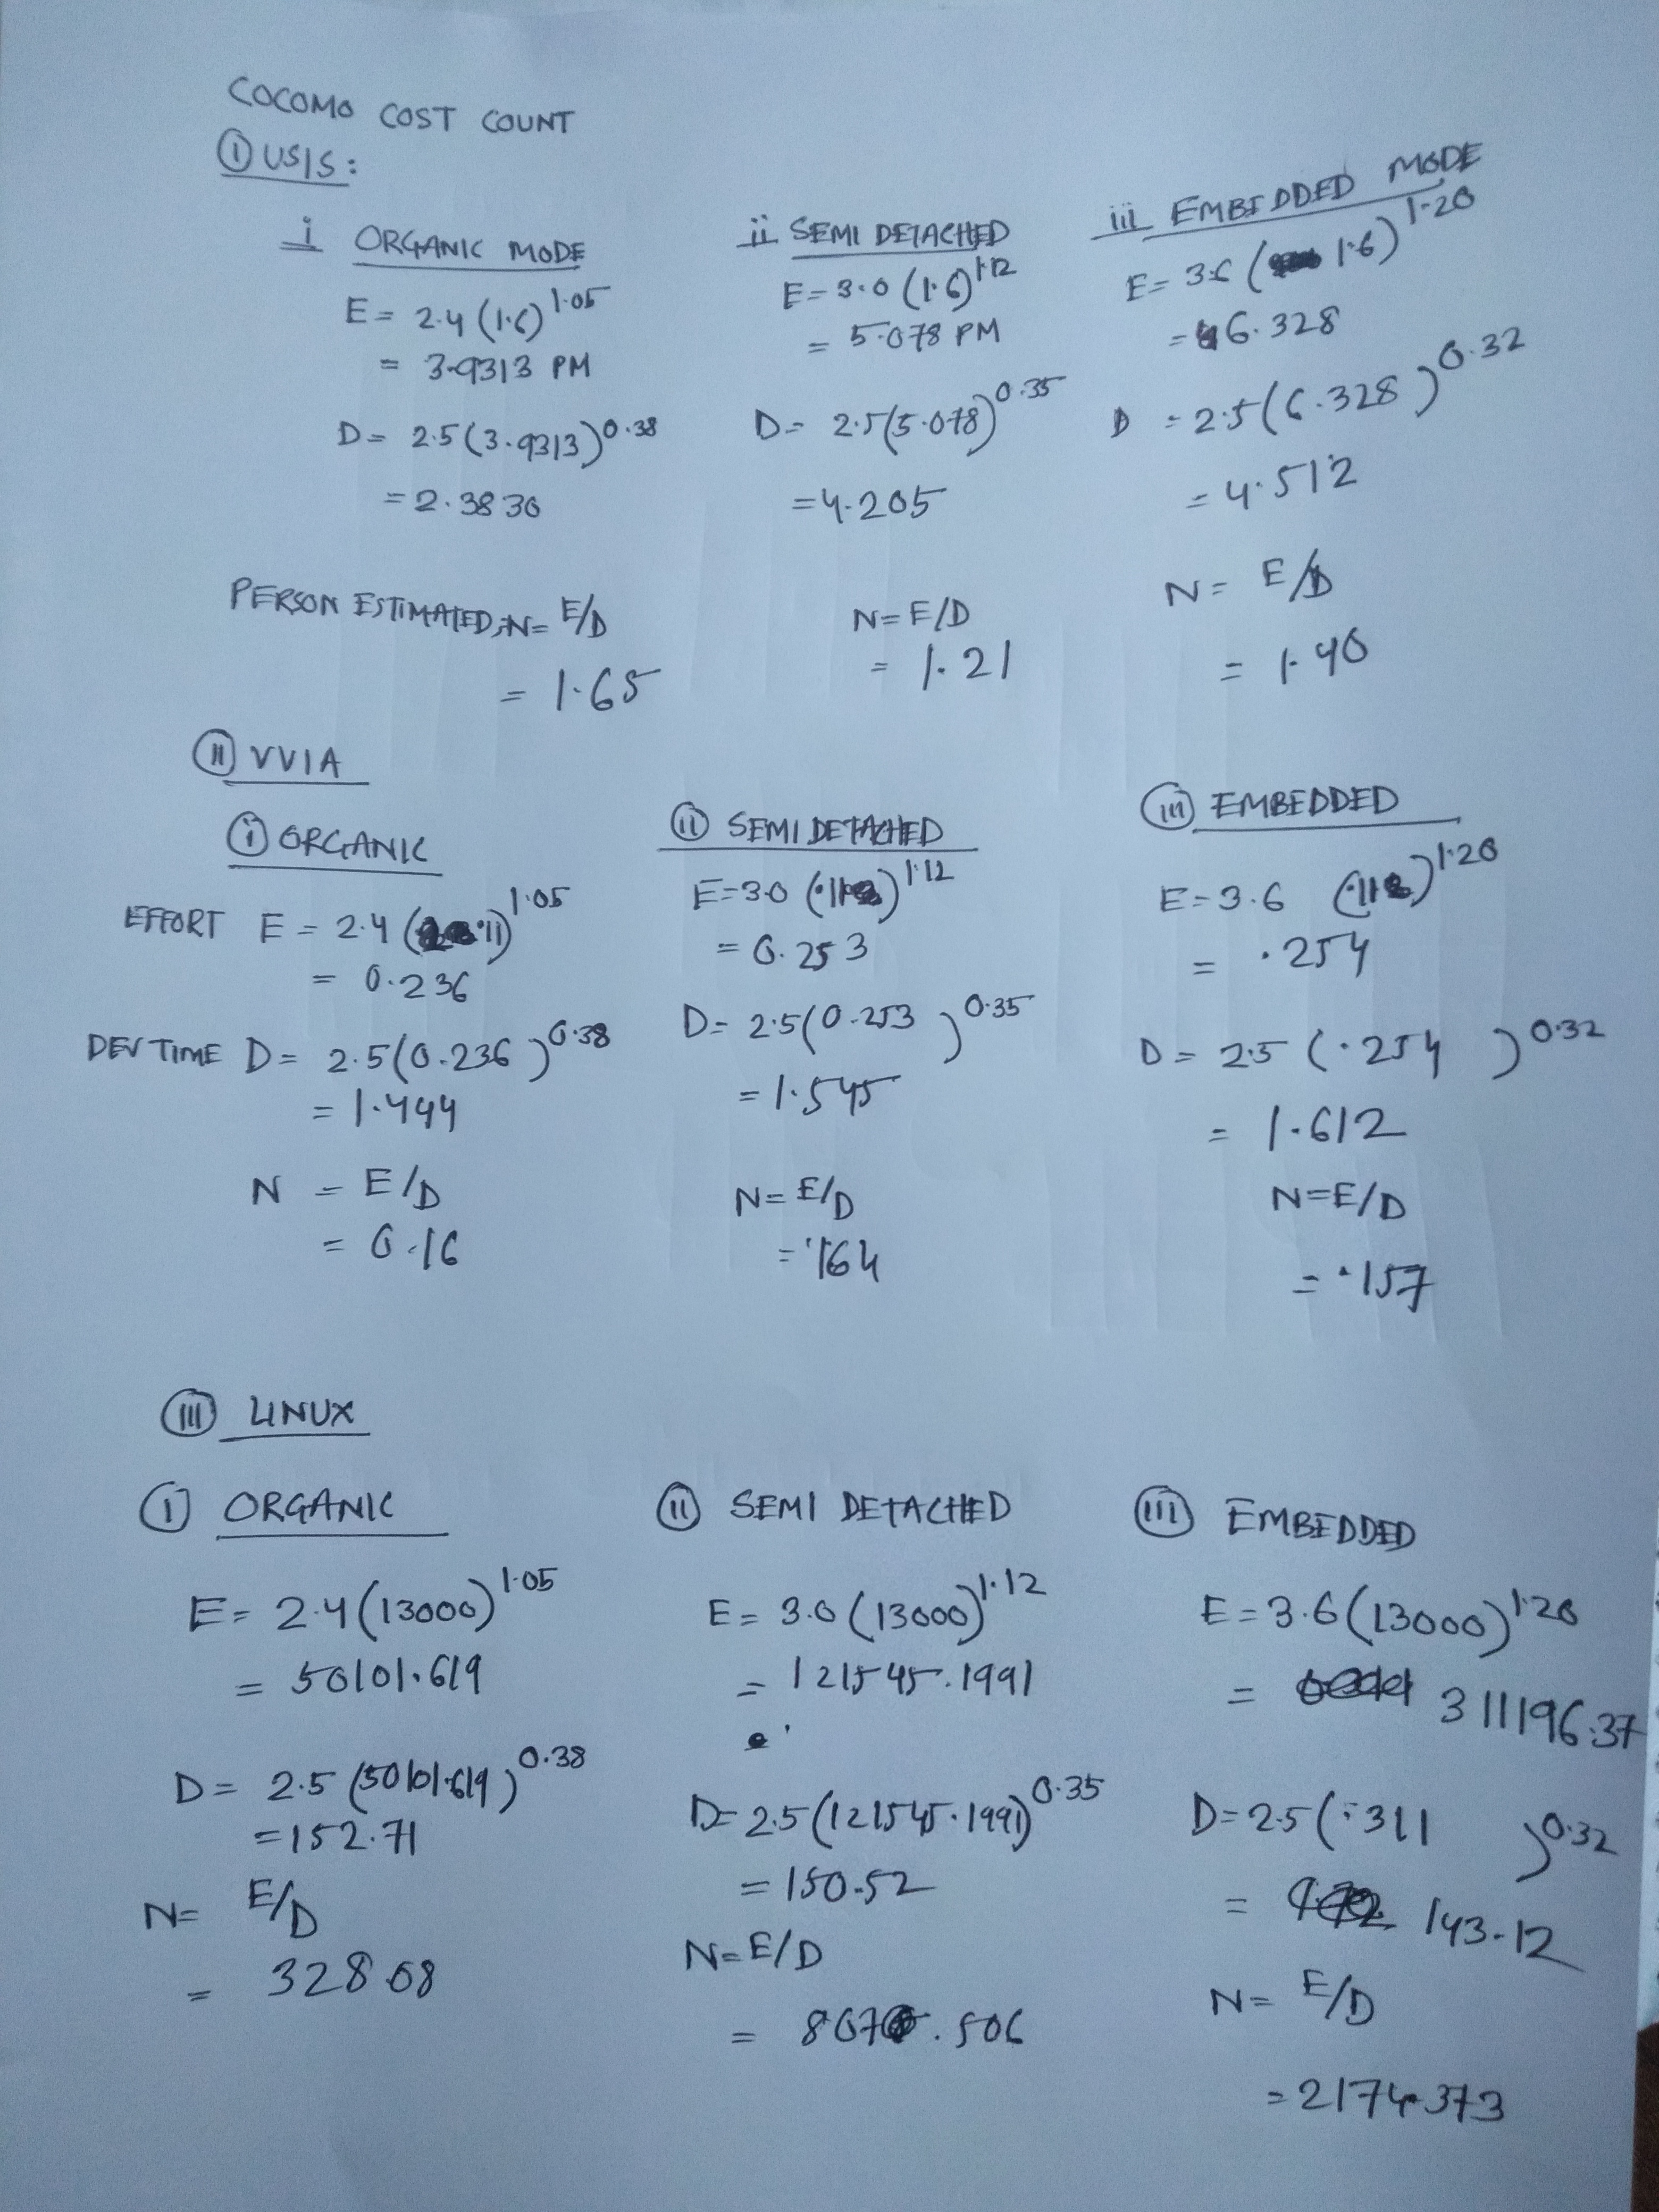 COCOMO COST COUNT
① USIS:
i ORGANIC MODE
E = 2.4 (1.6)^1.05
= 3.9313 PM
D = 2.5 (3.9313)^0.38
= 2.3830
PERSON ESTIMATED, N = E/D
= 1.65
ii SEMI DETACHED
E = 3.0 (1.6)^1.12
= 5.078 PM
D = 2.5(5.078)^0.35
= 4.205
N = E/D
= 1.21
iii EMBEDDED MODE
E = 3.6 (1.6)^1.20
= 6.328
D = 2.5(6.328)^0.32
= 4.512
N = E/D
= 1.40
Ⅱ VVIA
ⓘ ORGANIC
EFFORT E = 2.4 (.11)^1.05
= 0.236
DEV TIME D = 2.5(0.236)^0.38
= 1.444
N = E/D
= 0.16
ⅱ SEMI DETACHED
E = 3.0 (.11)^1.12
= 0.253
D = 2.5(0.253)^0.35
= 1.545
N = E/D
= .164
ⅲ EMBEDDED
E = 3.6 (.11)^1.20
= .254
D = 2.5 (.254)^0.32
= 1.612
N = E/D
= .157
Ⅲ LINUX
Ⅰ ORGANIC
E = 2.4 (13000)^1.05
= 50101.619
D = 2.5 (50101.619)^0.38
= 152.71
N = E/D
= 328.08
Ⅱ SEMI DETACHED
E = 3.0 (13000)^1.12
= 121545.1991
D = 2.5(121545.1991)^0.35
= 150.52
N = E/D
Ⅲ EMBEDDED
E = 3.6 (13000)^1.20
= 311196.37
D = 2.5 (311)^0.32
= 143.12
N = E/D
= 2174.373